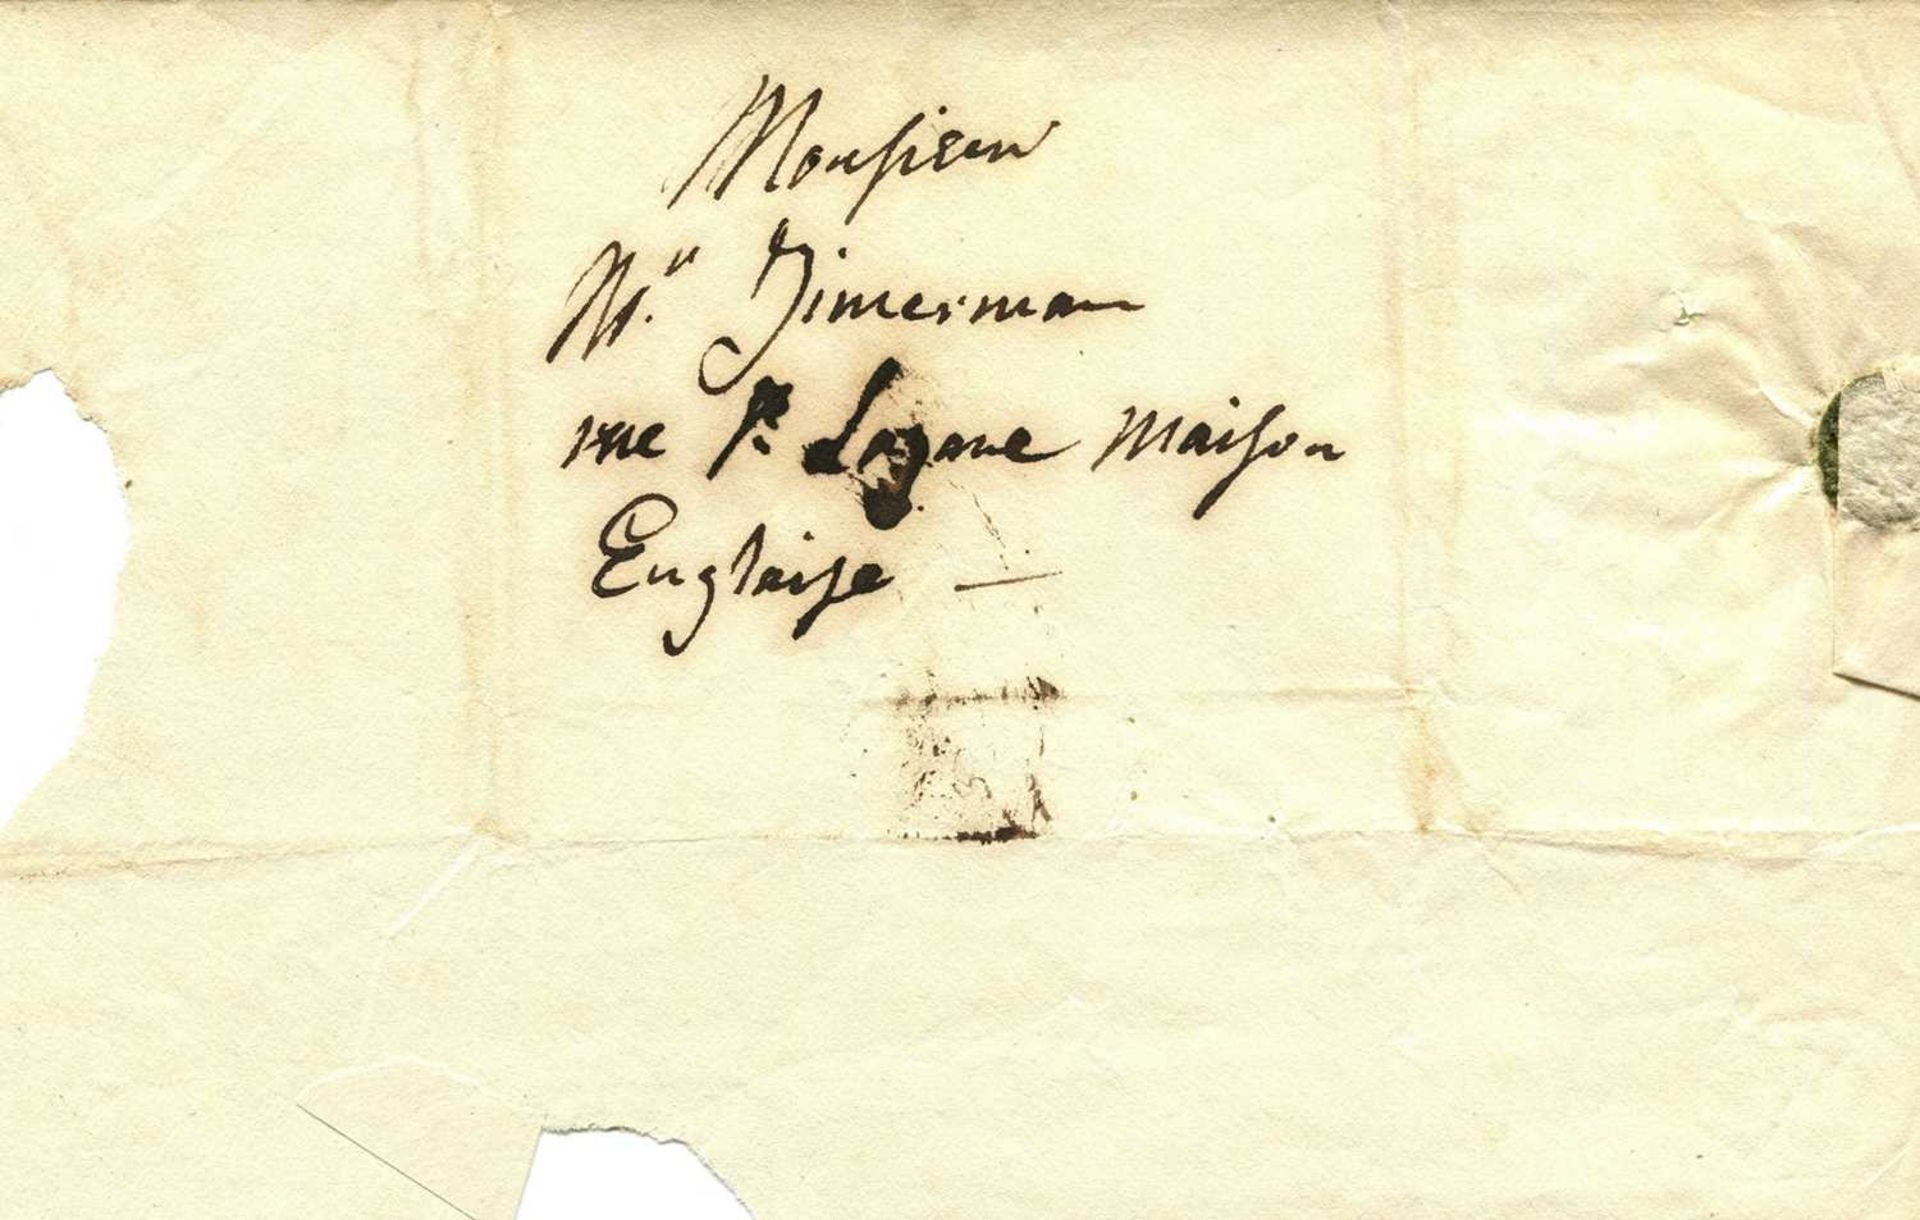 Monsieur
M.r Zimerman
rue St. Lazare Maison
Englaise —